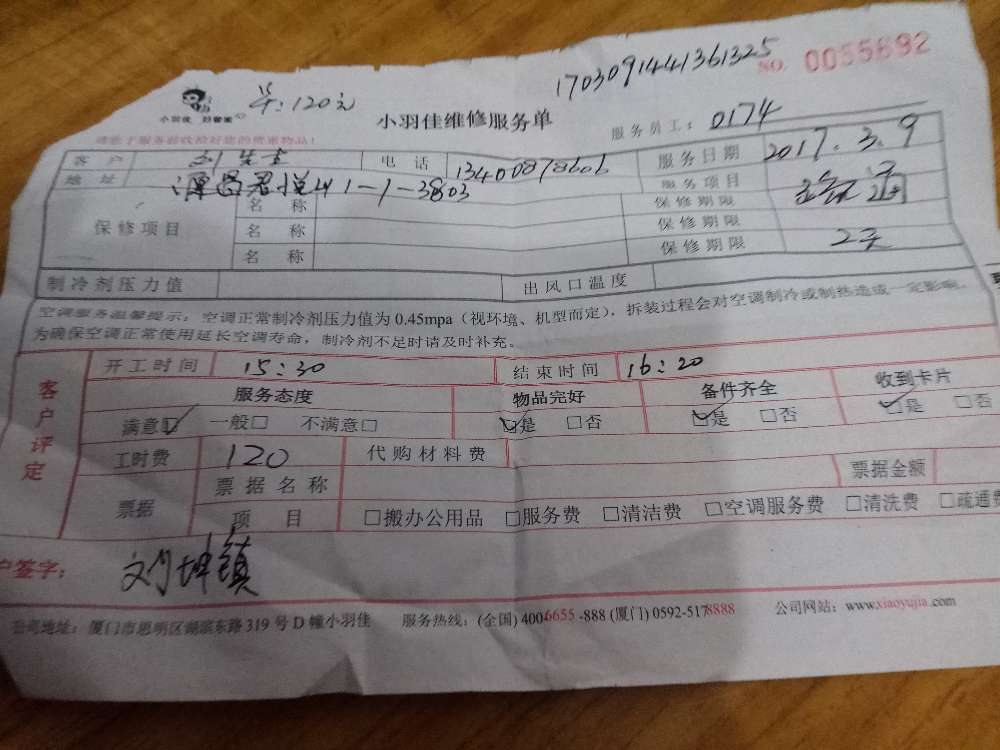 1703091441361325
NO. 0055692
单:120元
小羽佳 好管家
小羽佳维修服务单
服务员工: 0174
请收于服务前收拾好您的贵重物品!
客户 刘先生 电话 13400878606 服务日期 2017.3.9
地址 1-1-3803 服务项目
保修项目 名称 保修期限
名称 保修期限
名称 保修期限 2天
制冷剂压力值 出风口温度
空调服务温馨提示:空调正常制冷剂压力值为 0.45mpa(视环境、机型而定),拆装过程会对空调制冷或制热造成一定影响。
为确保空调正常使用延长空调寿命,制冷剂不足时请及时补充。
客户评定
开工时间 15:30 结束时间 16:20
服务态度 物品完好 备件齐全 收到卡片
满意☑ 一般□ 不满意□ ☑是 □否 ☑是 □否 ☑是 □否
工时费 120 代购材料费
票据 票据名称 票据金额
项目 □搬办公用品 □服务费 □清洁费 □空调服务费 □清洗费 □疏通费
户签字: 刘坤镇
公司地址:厦门市思明区湖滨东路 319 号 D 幢小羽佳 服务热线:(全国) 4006655-888 (厦门) 0592-5178888 公司网站:www.xiaoyujia.com